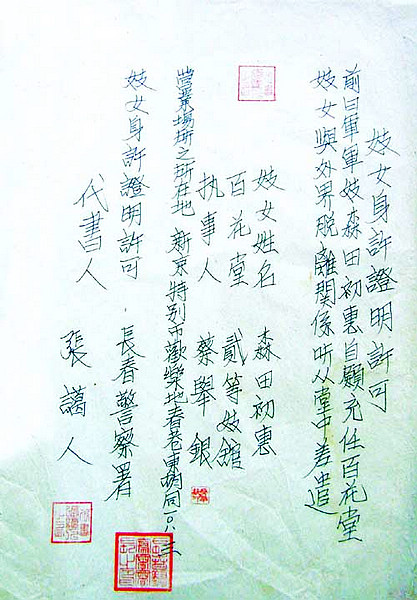 妓女身許證明許可
前日軍軍妓森田初惠自願充任百花堂
妓女與外界脫離關係听从堂中差遣
妓女姓名 森田初惠
百花堂 貳等妓館
执事人 蔡舉銀
營業場所之所在地 新京特别市歡樂地春巷東胡同
妓女身許證明許可 長春警察署
代書人 張謁人